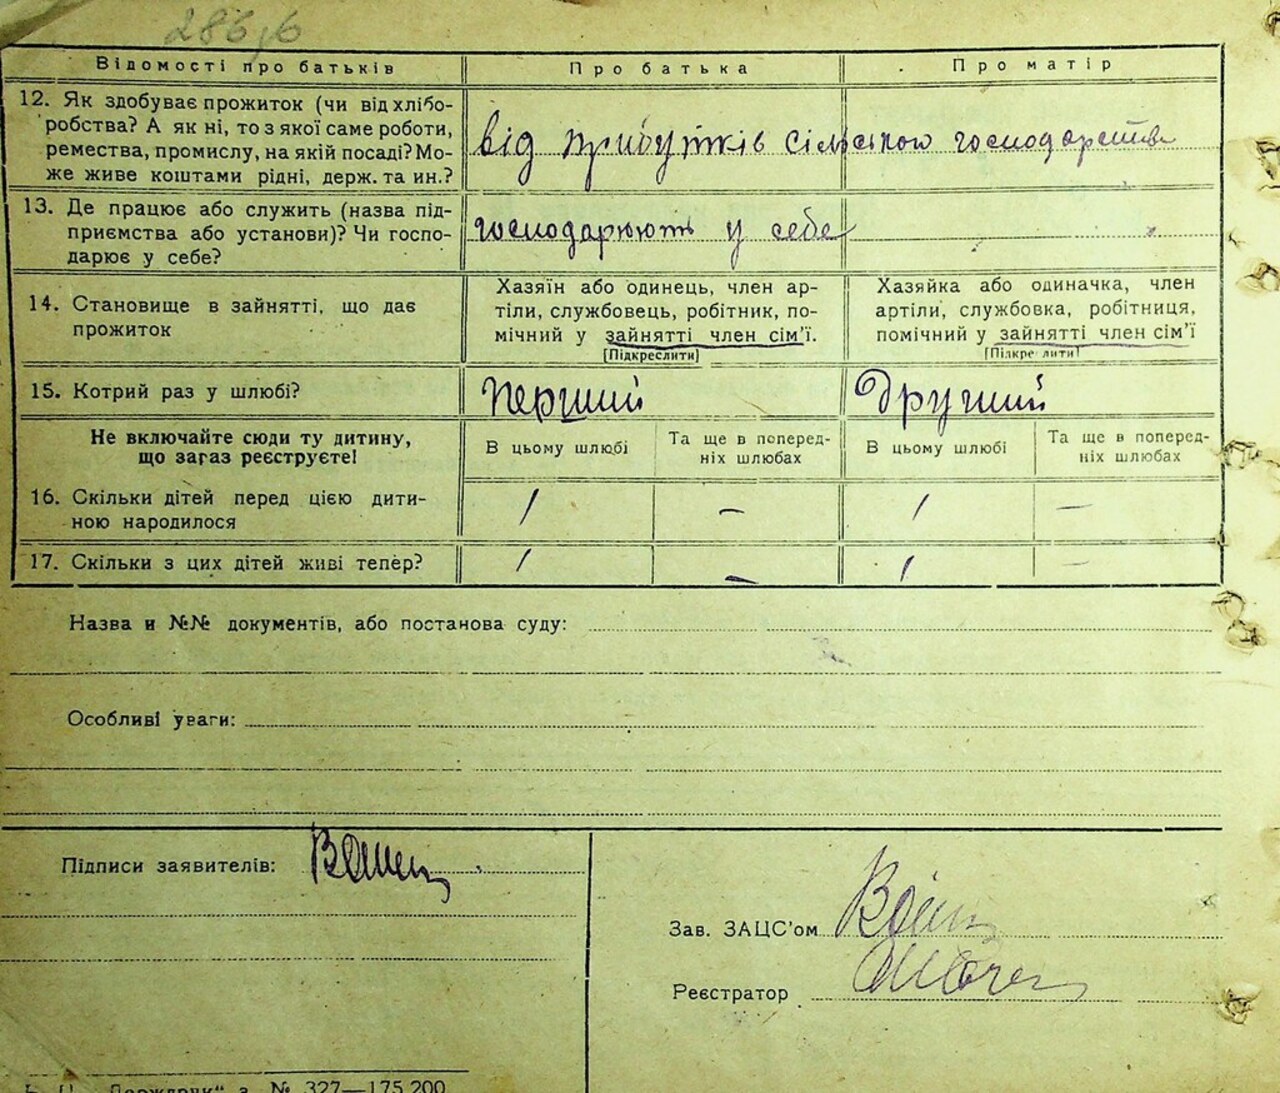 286/6
Відомості про батьків Про батька Про матір
12. Як здобуває прожиток (чи від хлібо-
робства? А як ні, то з якої саме роботи,
ремества, промислу, на якій посаді? Мо-
же живе коштами рідні, держ. та ин.?
від прибутків сільського господарства
13. Де працює або служить (назва під-
приємства або установи)? Чи госпо-
дарює у себе?
господарюють у себе
14. Становище в зайнятті, що дає
прожиток
Хазяїн або одинець, член ар-
тіли, службовець, робітник, по-
мічний у зайнятті член сім'ї.
(Підкреслити)
Хазяйка або одиначка, член
артіли, службовка, робітниця,
помічний у зайнятті член сім'ї
(Підкреслити)
15. Котрий раз у шлюбі? Перший Другий
Не включайте сюди ту дитину,
що зараз реєструєте!
В цьому шлюбі
Та ще в поперед-
ніх шлюбах
В цьому шлюбі
Та ще в поперед-
ніх шлюбах
16. Скільки дітей перед цією дити-
ною народилося
1 – 1 –
17. Скільки з цих дітей живі тепер? 1 – 1 –
Назва и №№ документів, або постанова суду:
Особливі уваги:
Підписи заявителів:
Зав. ЗАЦС'ом
Реєстратор
"Держдрук" з. № 327—175.200